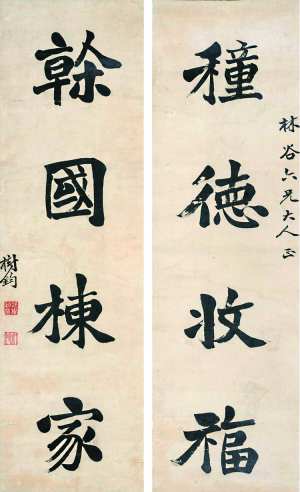 穜德收福
林谷六兄大人正
榦國棟家
樹鈞